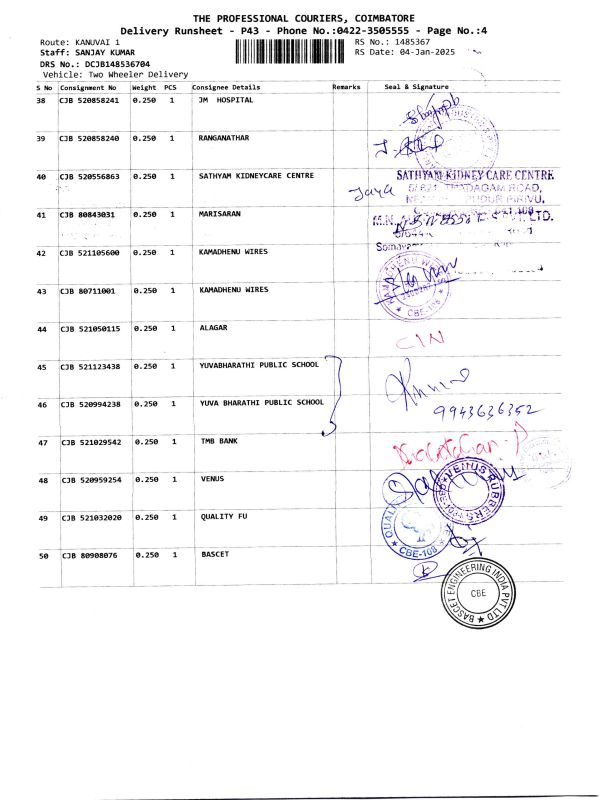 THE PROFESSIONAL COURIERS, COIMBATORE
Delivery Runsheet - P43 - Phone No.:0422-3505555 - Page No.:4
Route: KANUVAI 1 RS No.: 1485367
Staff: SANJAY KUMAR RS Date: 04-Jan-2025
DRS No.: DCJB148536704
Vehicle: Two Wheeler Delivery
S No Consignment No Weight PCS Consignee Details Remarks Seal & Signature
38 CJB 520858241 0.250 1 JM HOSPITAL
39 CJB 520858240 0.250 1 RANGANATHAR
40 CJB 520556863 0.250 1 SATHYAM KIDNEYCARE CENTRE SATHYAM KIDNEY CARE CENTRE
Jaya
41 CJB 80843031 0.250 1 MARISARAN
42 CJB 521105600 0.250 1 KAMADHENU WIRES
43 CJB 80711001 0.250 1 KAMADHENU WIRES
CBE-108
44 CJB 521050115 0.250 1 ALAGAR
CIN
45 CJB 521123438 0.250 1 YUVABHARATHI PUBLIC SCHOOL
46 CJB 520994238 0.250 1 YUVA BHARATHI PUBLIC SCHOOL
9943636352
47 CJB 521029542 0.250 1 TMB BANK
48 CJB 520959254 0.250 1 VENUS
VENUS RUBBERS
49 CJB 521032020 0.250 1 QUALITY FU
CBE-108
50 CJB 80908076 0.250 1 BASCET
BASCET ENGINEERING INDIA PVT LTD
CBE